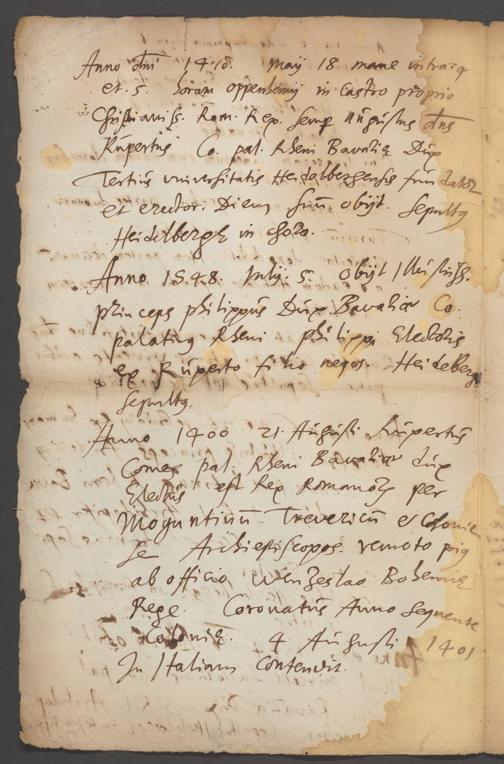 Anno dni 1410. Maij 18 mane intra 4
et 5 horam oppenhemij in castro proprio
Christianiss. Rom. Rex. semp Augustus dns
Rupertus Co. pal. Rheni Bavariæ Dux
Tertius universitatis Heidelbergensis fundator
et erector. Diem suū obijt. Sepultq
Heidelbergæ in choro.
Anno 1548. Julij 5. obijt Illustriss.
princeps philippus Dux Bavariæ Co.
palatinq Rheni philippi Electoris
ex Ruperto filio nepos. Heidelberg
sepultq.
Anno 1400 21 Augusti Rupertus
Comes pal. Rheni Bavariæ dux
Electus est Rex Romanorū per
Moguntinū Trevericū et Colonie
se Archiepiscopos. remoto priq
ab officio Wenzeslao Bohemiæ
Rege. Coronatus Anno sequente
Coloniæ. 4 Augusti 1401
In Italiam contendit.